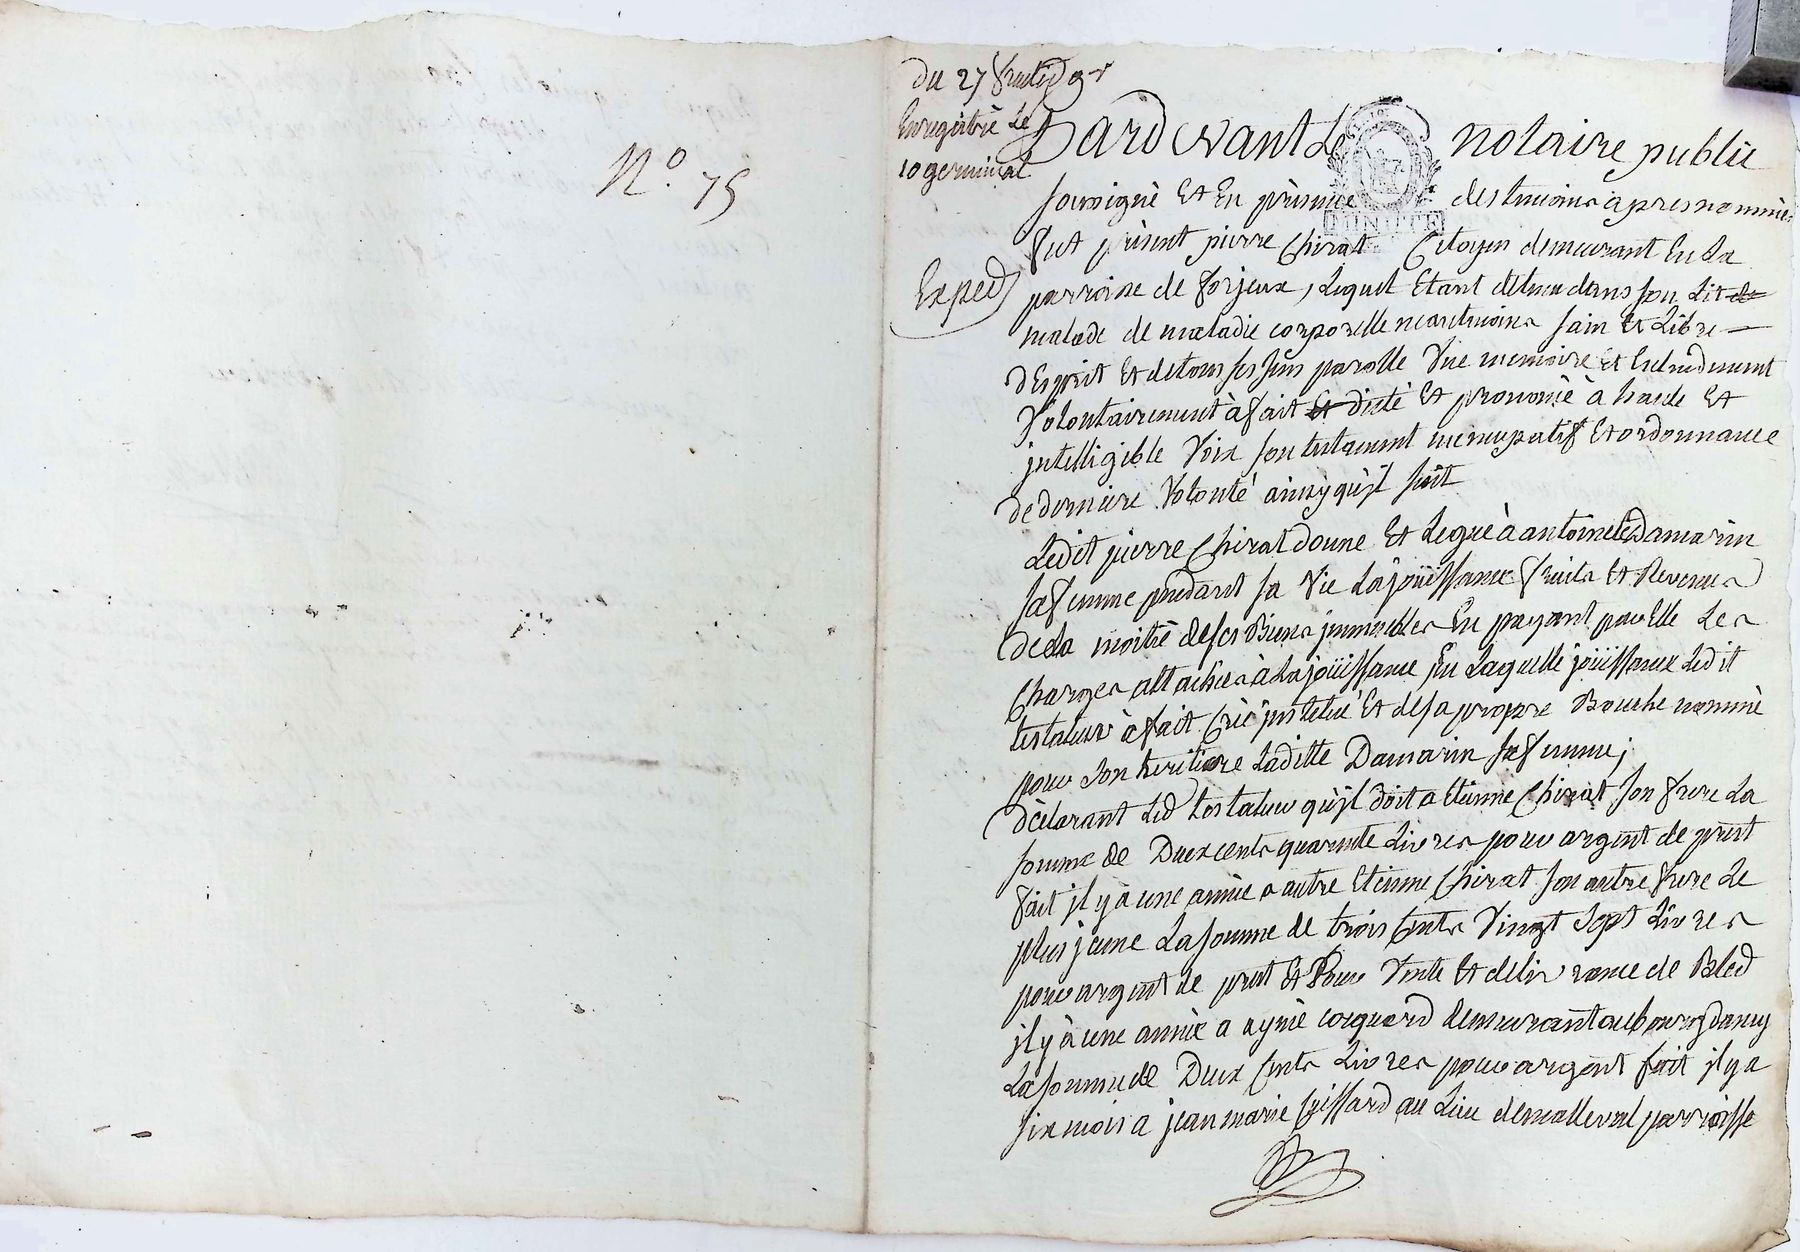 N.o 75
Du 27 fructid 9.r
Enregistré Le
10 germinal
Expéd
Pardevant Le notaire public
soussigné Et En présence des temoins apres nommés
fut présent pierre Chirat Citoyen demeurant En La
parroisse de forjeux, Lequel Etant detenu dans son Lit de
malade de maladie corporelle neantmoins sain Et Libre
d'Esprit Et de tous ses sens parolle Vue memoire Et Entendement
Volontairement à fait Et dicté Et prononcé à haute Et
jntelligible Voix son testament nuncupatif Et ordonnance
de derniere Volonté ainsy qu'jl suit
Ledit pierre Chirat donne Et Legue à antoinete Damarin
sa femme pendant sa Vie La joüissance fruits Et Revenus
de La moitié de ses Biens jmmeubles En payant par Elle Les
Charges attachées à La joüissance En Laquelle joüissance Ledit
testateur à fait Créé jnstitué Et de sa propre Bouche nommé
pour son heritiere Laditte Damarin sa femme;
Déclarant Led testateur qu'jl doit a Etienne Chirat son frere La
somme de Deux cents quarente Livres pour argent de prest
fait jl y à une année a autre Etienne Chirat son autre frere Le
plus jeune La somme de trois Cents Vingt sept Livres
pour argent de prest Et Pour Vente Et delivrance de Bled
jl y à une année a aymé coquard demeurant au bourg dancy
La somme de Deux Cents Livres pour argent fait jl y a
six mois a jean marie Giffard au Lieu de malleval parroisse